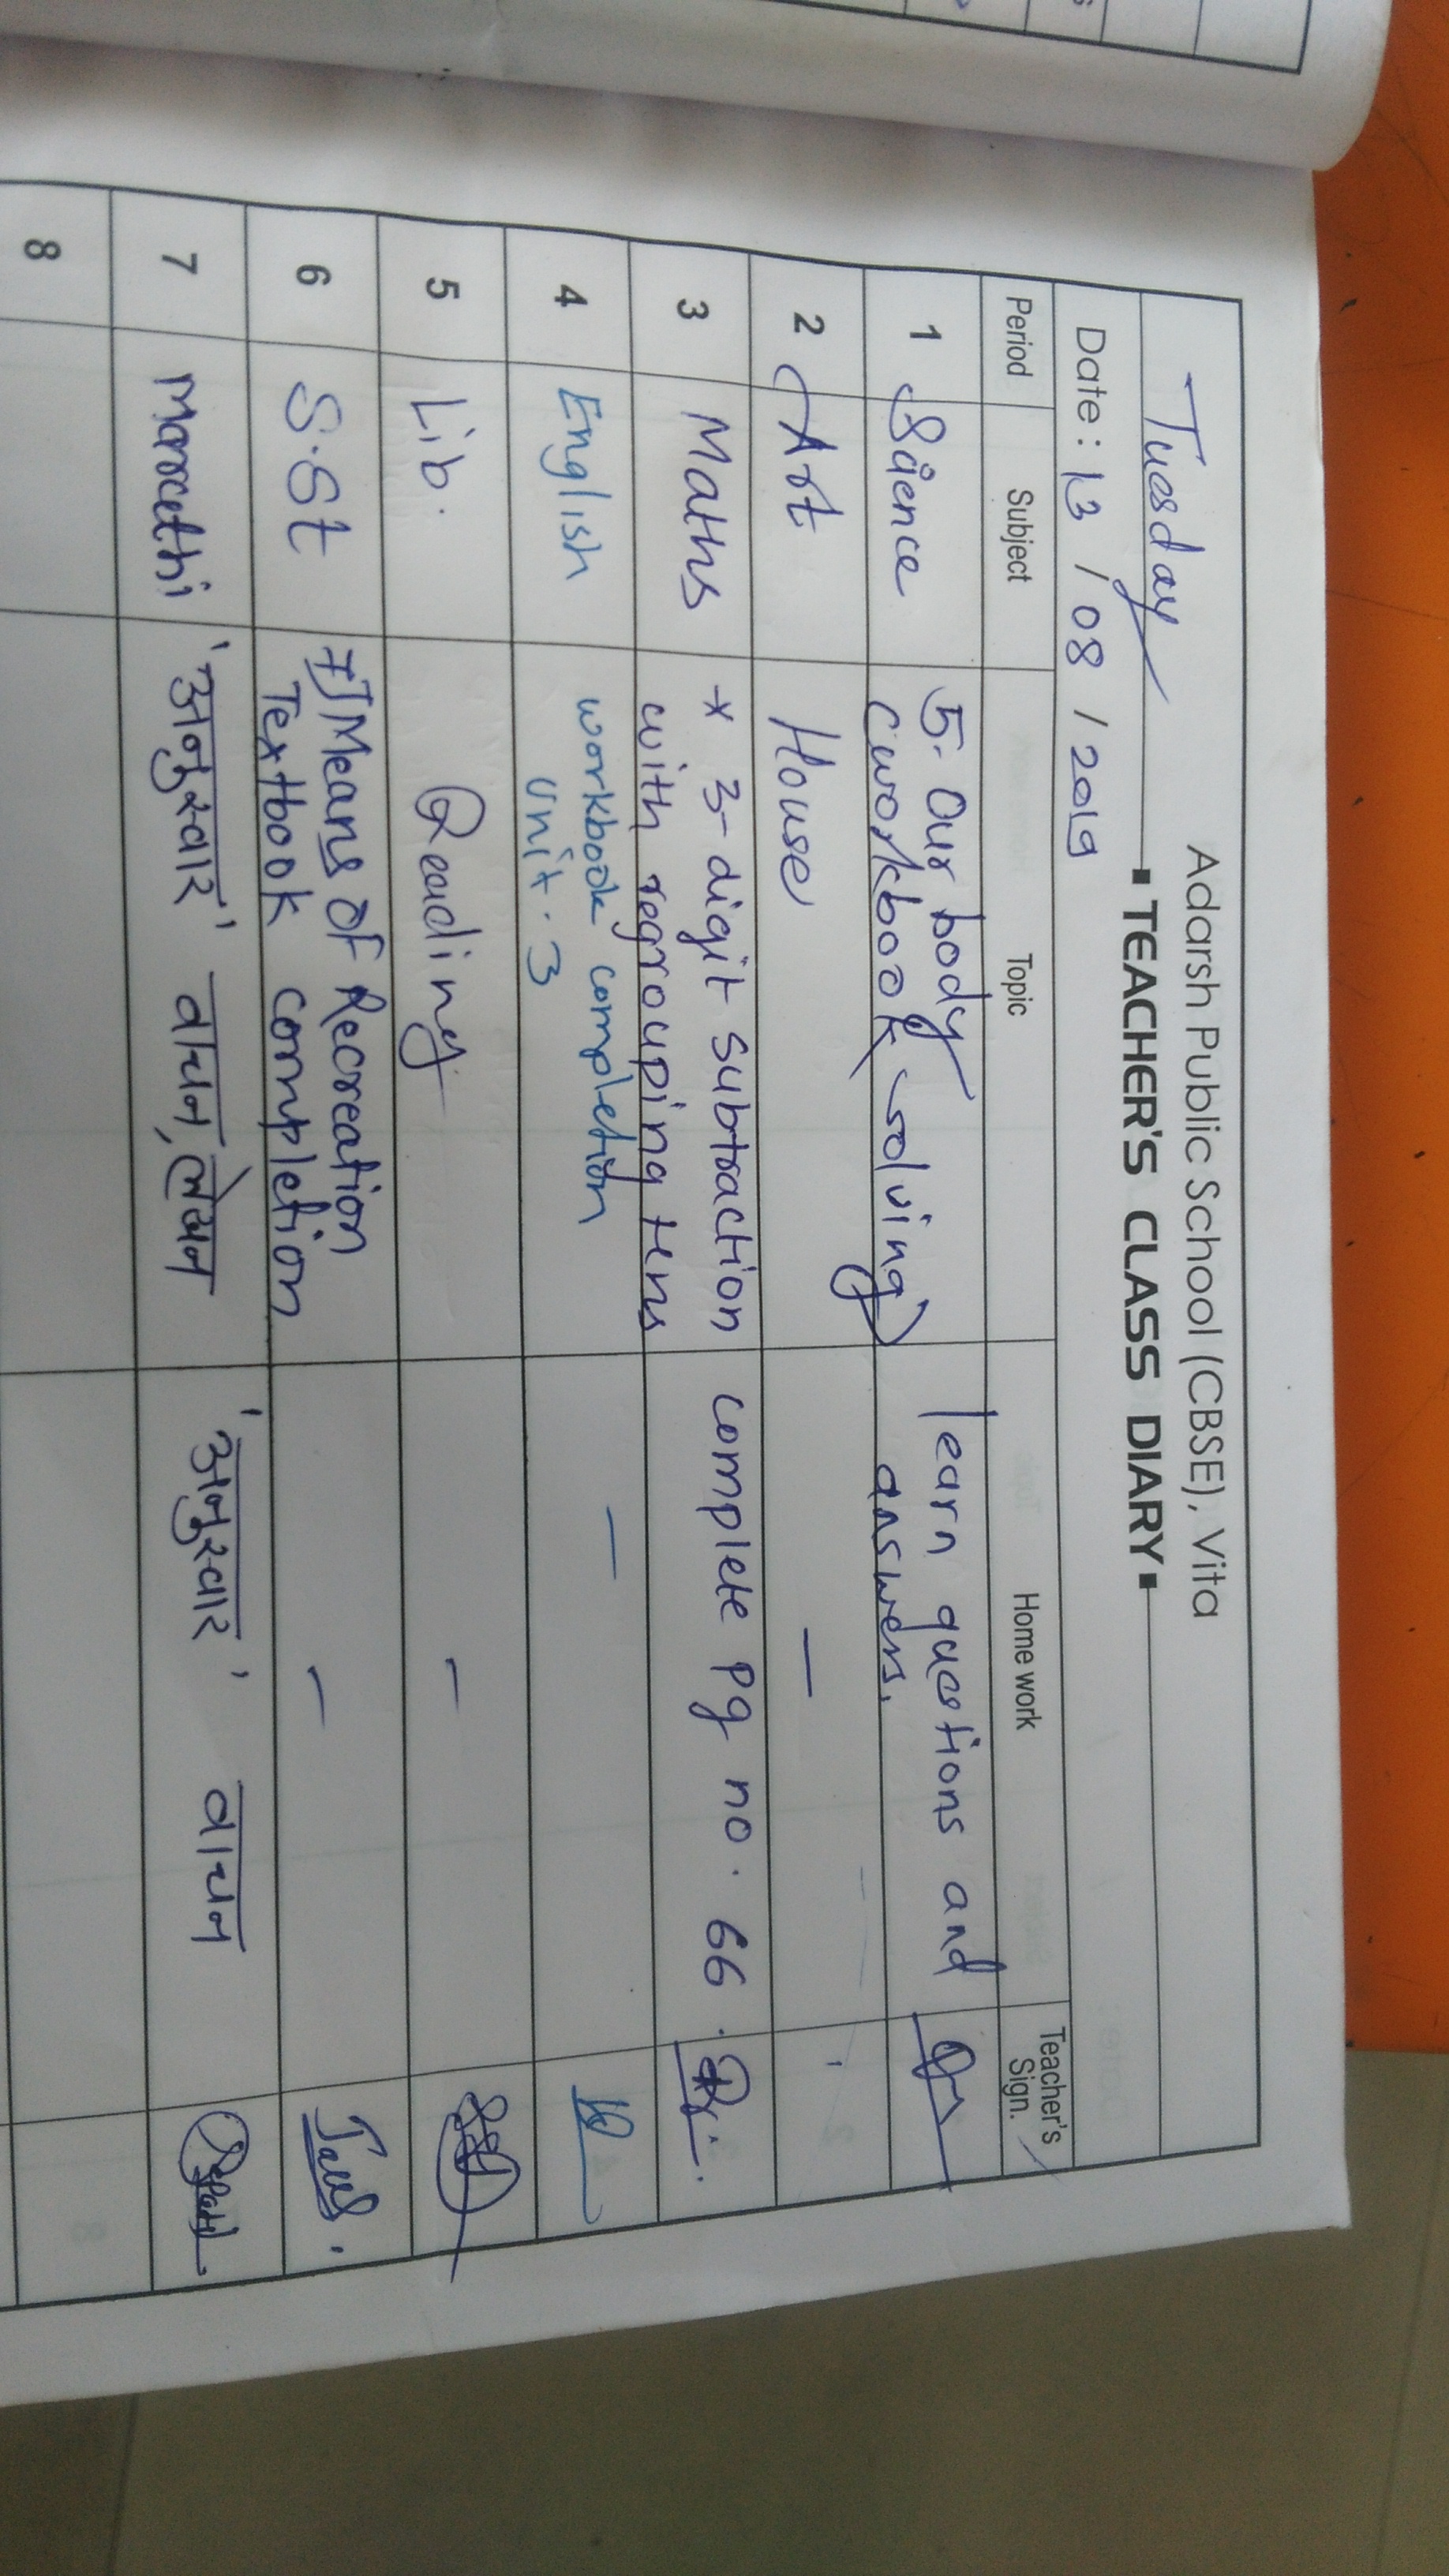 Adarsh Public School (CBSE), Vita
Tuesday ▪ TEACHER'S CLASS DIARY ▪
Date : 13 / 08 / 2019
Period Subject Topic Home work Teacher's Sign.
1 Science 5. Our body learn questions and
(workbook solving) answers.
2 Art House —
3 Maths * 3-digit subtraction complete pg no. 66.
with regrouping tens
4 English workbook completion —
Unit. 3
5 Lib. Reading —
6 S.St 7] Means of Recreation —
Textbook completion
7 Marathi 'अनुस्वार' वाचन, लेखन 'अनुस्वार' वाचन
8